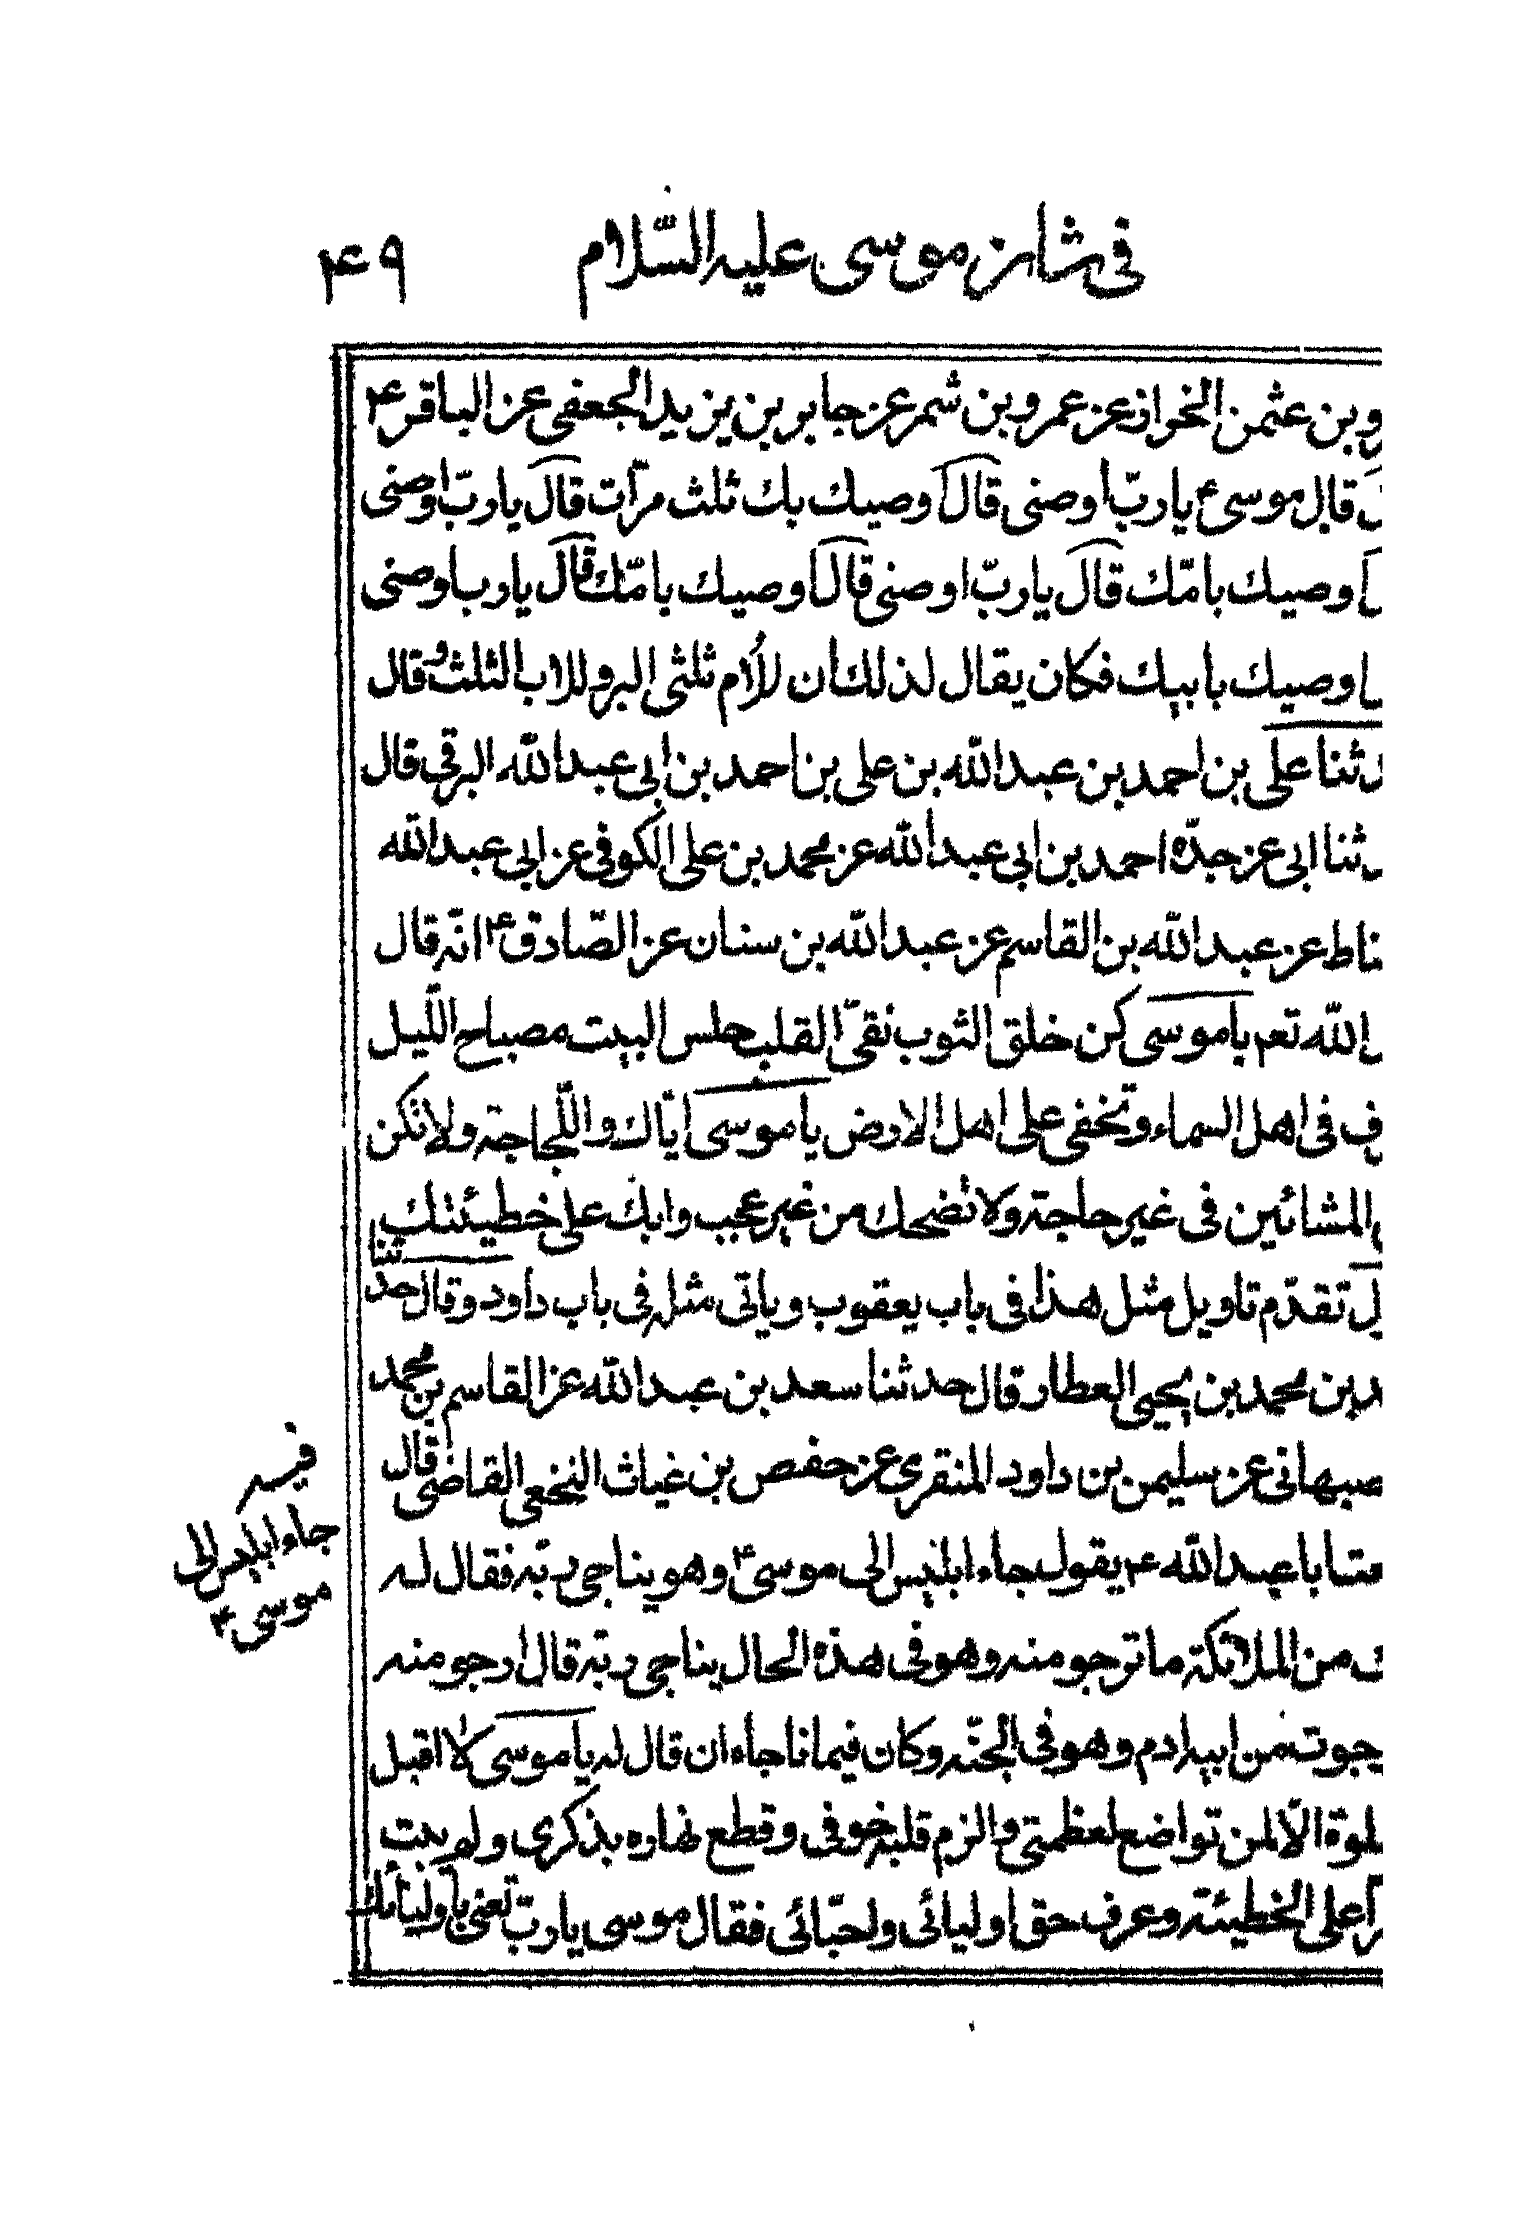 في شان موسى عليه السّلام ۴۹
وبن عثمن الخراز عن عمرو بن شمر عن جابر بن يزيد الجعفى عن الباقر ۴
قال موسى ۴ يا ربّ اوصنى قال اوصيك بك ثلث مرّات قال يا ربّ اوصنى
اوصيك بامّك قال يا ربّ اوصنى قال اوصيك بامّك قال يا رب اوصنى
اوصيك بابيك فكان يقال لذلك أن للأم ثلثى البر وللاب الثلث وقال
ثنا على بن احمد بن عبد الله بن على بن احمد بن ابى عبد الله البرقى قال
ثنا ابى عن جدّه احمد بن ابى عبد الله عن محمد بن على الكوفى عن ابى عبد الله
ناط عن عبد الله بن القاسم عن عبد الله بن سنان عن الصّادق ۴ انّه قال
الله تعم ياموسى كن خلق الثوب نقىّ القلب حلس البيت مصباح اللّيل
ف فى اهل السماء وتخفى على اهل الارض ياموسى ايّاك واللّجاجة ولا تكن
المشائين فى غير حاجة ولا تضحك من غير عجب وابك على خطيئتك
تقدّم تاويل مثل هذا فى باب يعقوب وياتى مثله فى باب داود وقال حدثنا
بن محمد بن يحيى العطار قال حدثنا سعد بن عبد الله عن القاسم بن محمد
صبهانى عن سليمن بن داود المنقرى عن حفص بن غياث النخعى القاضى قال
عت ابا عبد الله ۴ يقول جاء ابليس الى موسى ۴ وهو يناجى ربّه فقال له
من الملائكة ما ترجو منه وهو فى هذه الحال يناجى ربّه قال ارجو منه
جوت من ابيه ادم وهو فى الجنّه وكان فيما ناجاه ان قال له ياموسى لا اقبل
لوة الّا لمن تواضع لعظمتى والزم قلبه خوفى وقطع نهاره بذكرى ولم يبت
را على الخطيئة وعرف حق اوليائى ولحبّائى فقال موسى يا ربّ تعنى باوليائك
فيه
جاء ابليس الى
موسى ۴